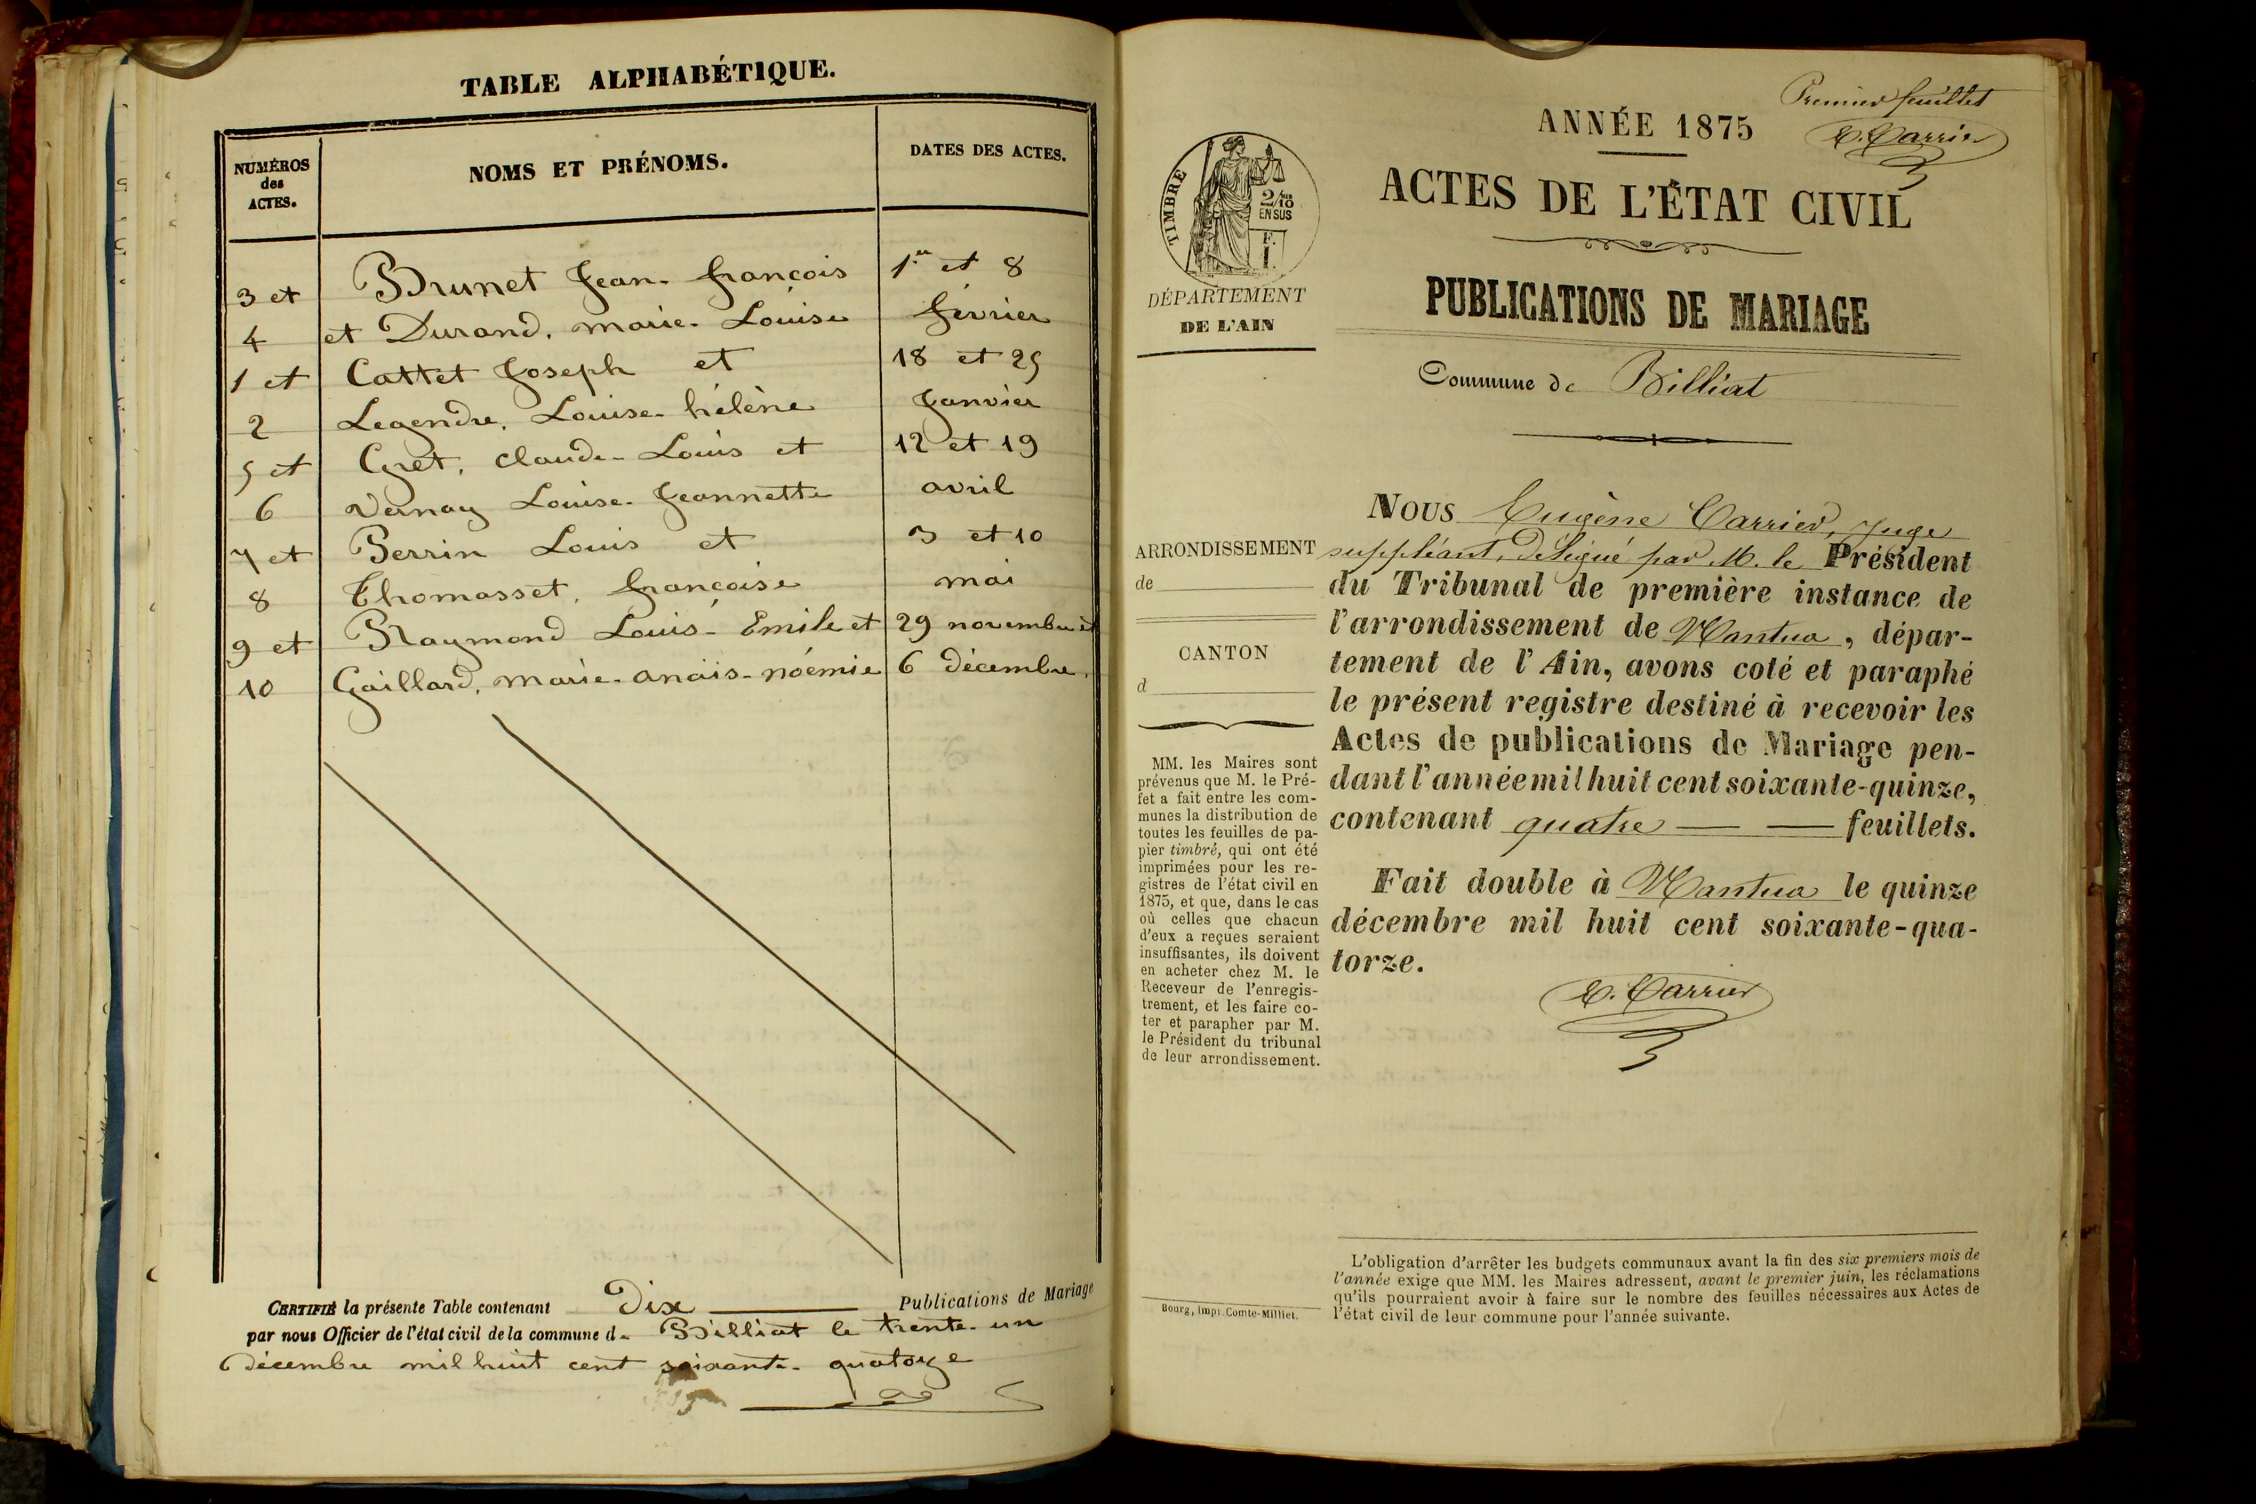 TABLE ALPHABÉTIQUE.
NUMÉROS
des
ACTES.
NOMS ET PRÉNOMS.
DATES DES ACTES.
3 et Brunet Jean-françois 1er et 8
4 et Durand, marie-Louise février
1 et Cattet Joseph et 18 et 25
2 Legendre, Louise-hélène Janvier
5 et Gret, claude-Louis et 12 et 19
6 Vernay Louise-Jeannette avril
7 et Perrin Louis et 3 et 10
8 Thomasset, françoise mai
9 et Raymond Louis-Emile et 29 novembre et
10 Gaillard, marie-anaïs-noémie 6 décembre.
CERTIFIÉ la présente Table contenant Dix Publications de Mariage
par nous Officier de l'état civil de la commune d. Billiat le trente-un
décembre mil huit cent soixante-quatorze
Premier feuillet
E. Carrier
ANNÉE 1875
ACTES DE L'ÉTAT CIVIL
PUBLICATIONS DE MARIAGE
Commune de Billiat
TIMBRE
2/10
EN SUS
F.
1.
DÉPARTEMENT
DE L'AIN
ARRONDISSEMENT
de
CANTON
d
MM. les Maires sont
prévenus que M. le Pré-
fet a fait entre les com-
munes la distribution de
toutes les feuilles de pa-
pier timbré, qui ont été
imprimées pour les re-
gistres de l'état civil en
1875, et que, dans le cas
où celles que chacun
d'eux a reçues seraient
insuffisantes, ils doivent
en acheter chez M. le
Receveur de l'enregis-
trement, et les faire co-
ter et parapher par M.
le Président du tribunal
de leur arrondissement.
Bourg, Imp. Comte-Milliet.
NOUS Eugène Carrier, Juge
suppléant, délégué par M. le Président
du Tribunal de première instance de
l'arrondissement de Nantua, dépar-
tement de l'Ain, avons coté et paraphé
le présent registre destiné à recevoir les
Actes de publications de Mariage pen-
dant l'année mil huit cent soixante-quinze,
contenant quatre feuillets.
Fait double à Nantua le quinze
décembre mil huit cent soixante-qua-
torze.
E. Carrier
L'obligation d'arrêter les budgets communaux avant la fin des six premiers mois de
l'année exige que MM. les Maires adressent, avant le premier juin, les réclamations
qu'ils pourraient avoir à faire sur le nombre des feuilles nécessaires aux Actes de
l'état civil de leur commune pour l'année suivante.